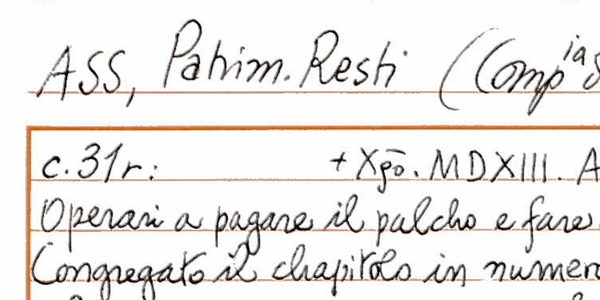 ASS, Patrim. Resti (Comp^ia S
c. 31r: + Xp̄o. MDXIII. A
Operari a pagare il palcho e fare
Congregato il chapitolo in numer